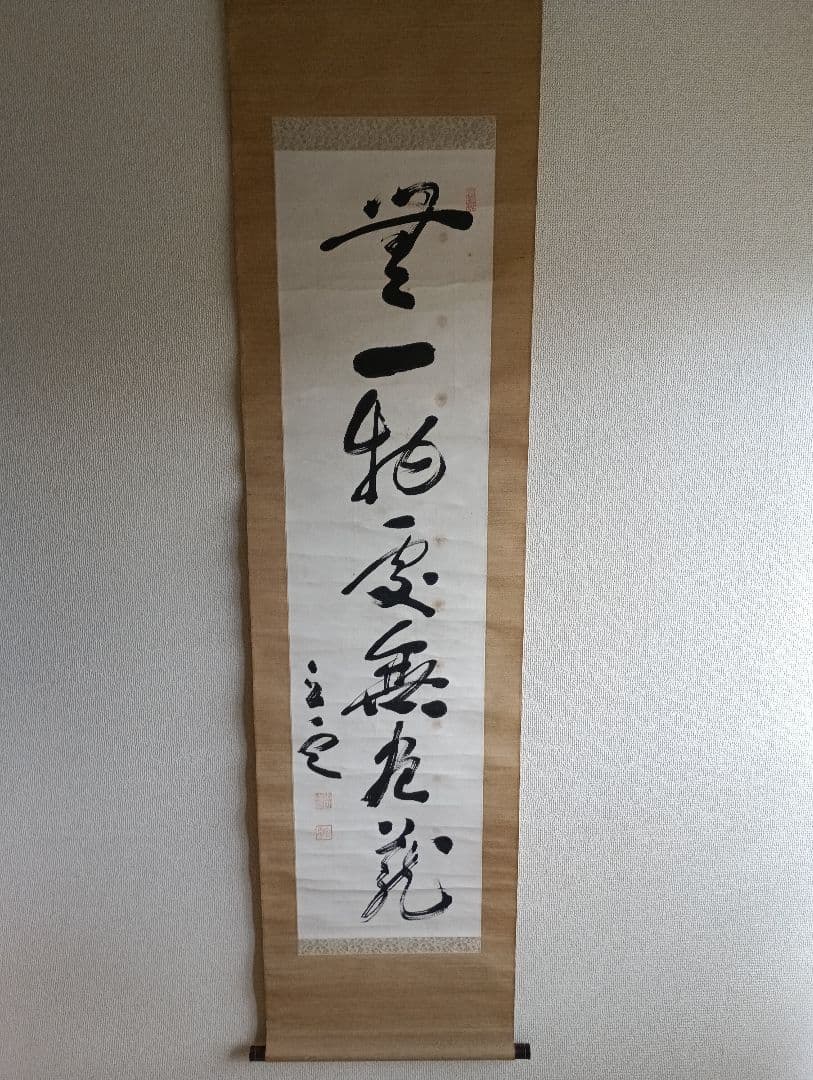 無一物處無尽蔵